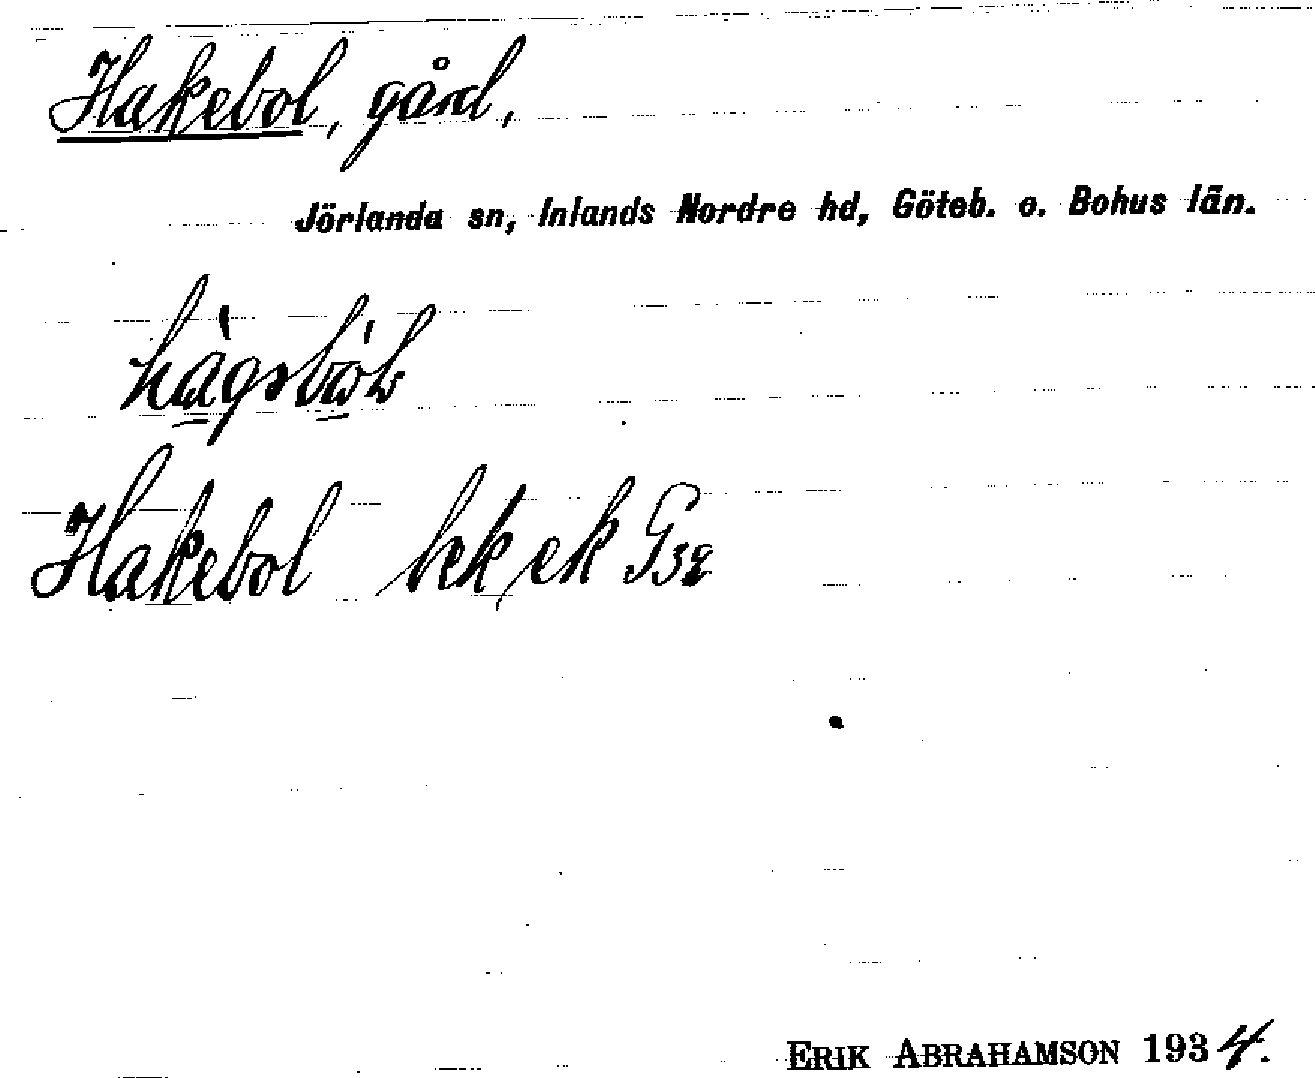 Hakebol, gård,
Jörlanda sn, Inlands Nordre hd, Göteb. o. Bohus län.
Hakebol
ERIK ABRAHAMSON 1934.